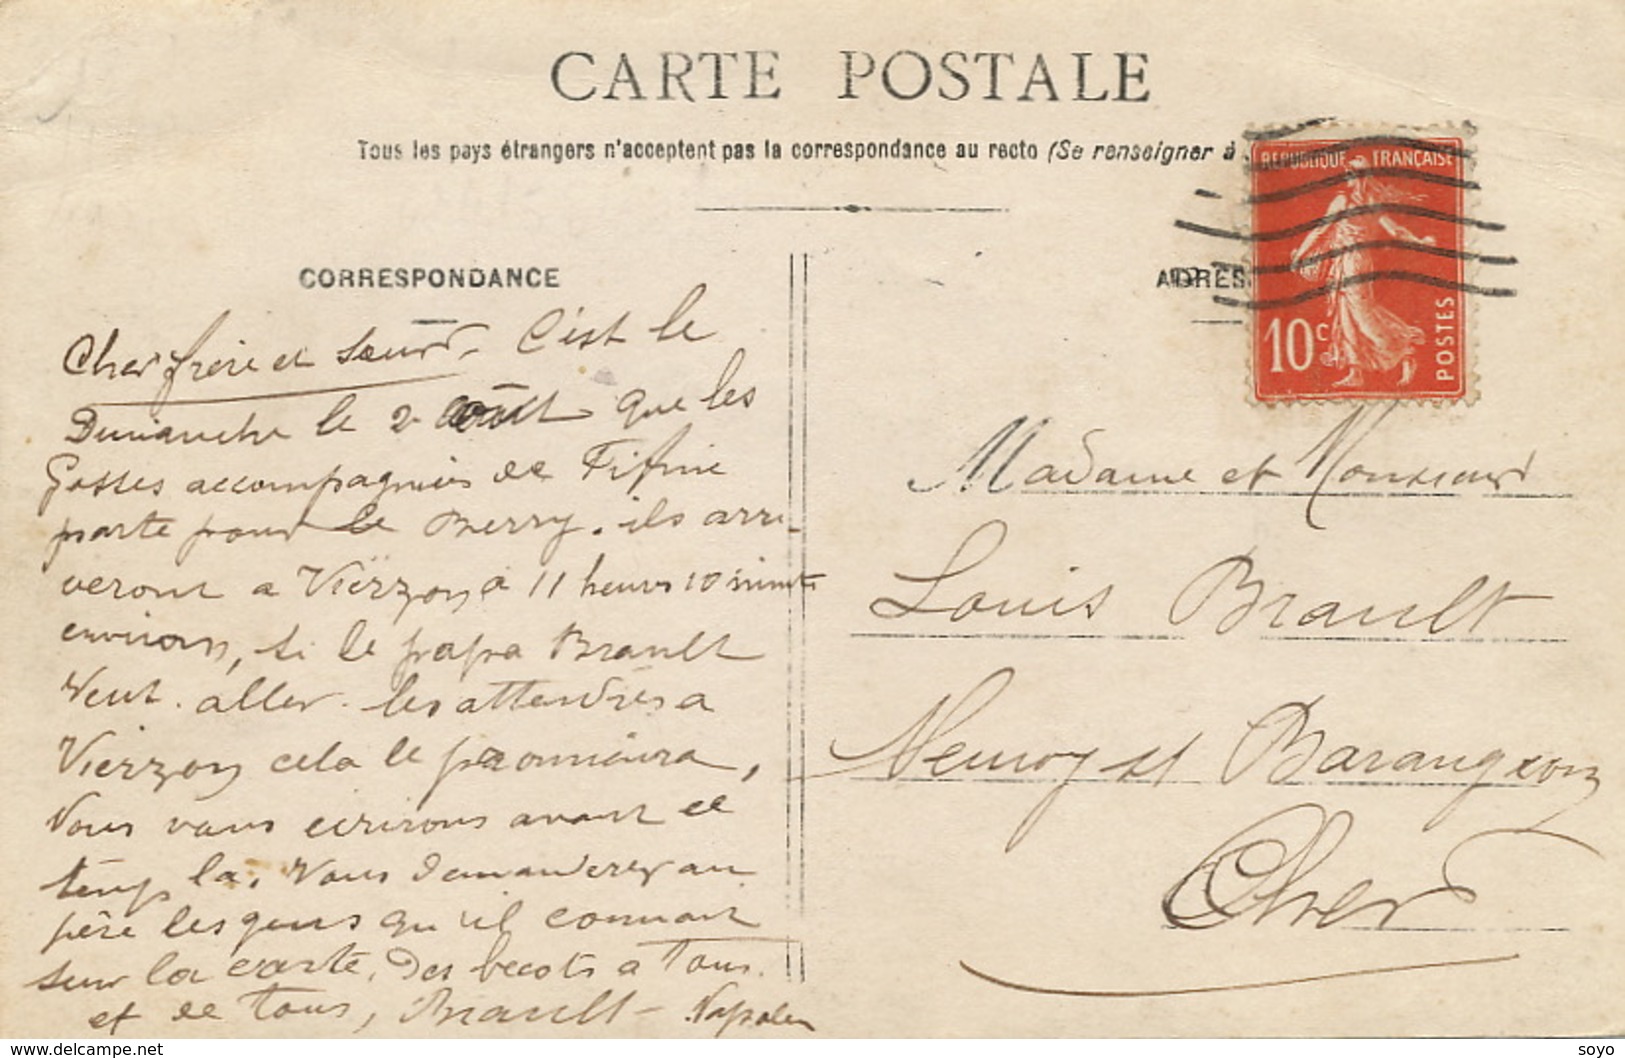 CARTE POSTALE
Tous les pays étrangers n'acceptent pas la correspondance au recto (Se renseigner à
REPUBLIQUE FRANÇAISE
10c
POSTES
CORRESPONDANCE
Cher frère et Sœur. C'est le
Dimanche le 2 Août que les
Gosses accompagnés de Fifine
parte pour le Berry. ils arri-
veront a Vierzon a 11 heures 10 minutes
environs, si le papa Brault
veut aller les attendres a
Vierzon cela le promènera,
Nous vous ecrirons avant ce
temp la. Vous demanderez au
père les gens qu'il connait
sur la carte. Des becots a Tous.
et de Tous, Brault - Napoleon
ADRES
Madame et Monsieur
Louis Brault
Neuvoy st Barangeon
Cher
https://www.delcampe.net
soyo